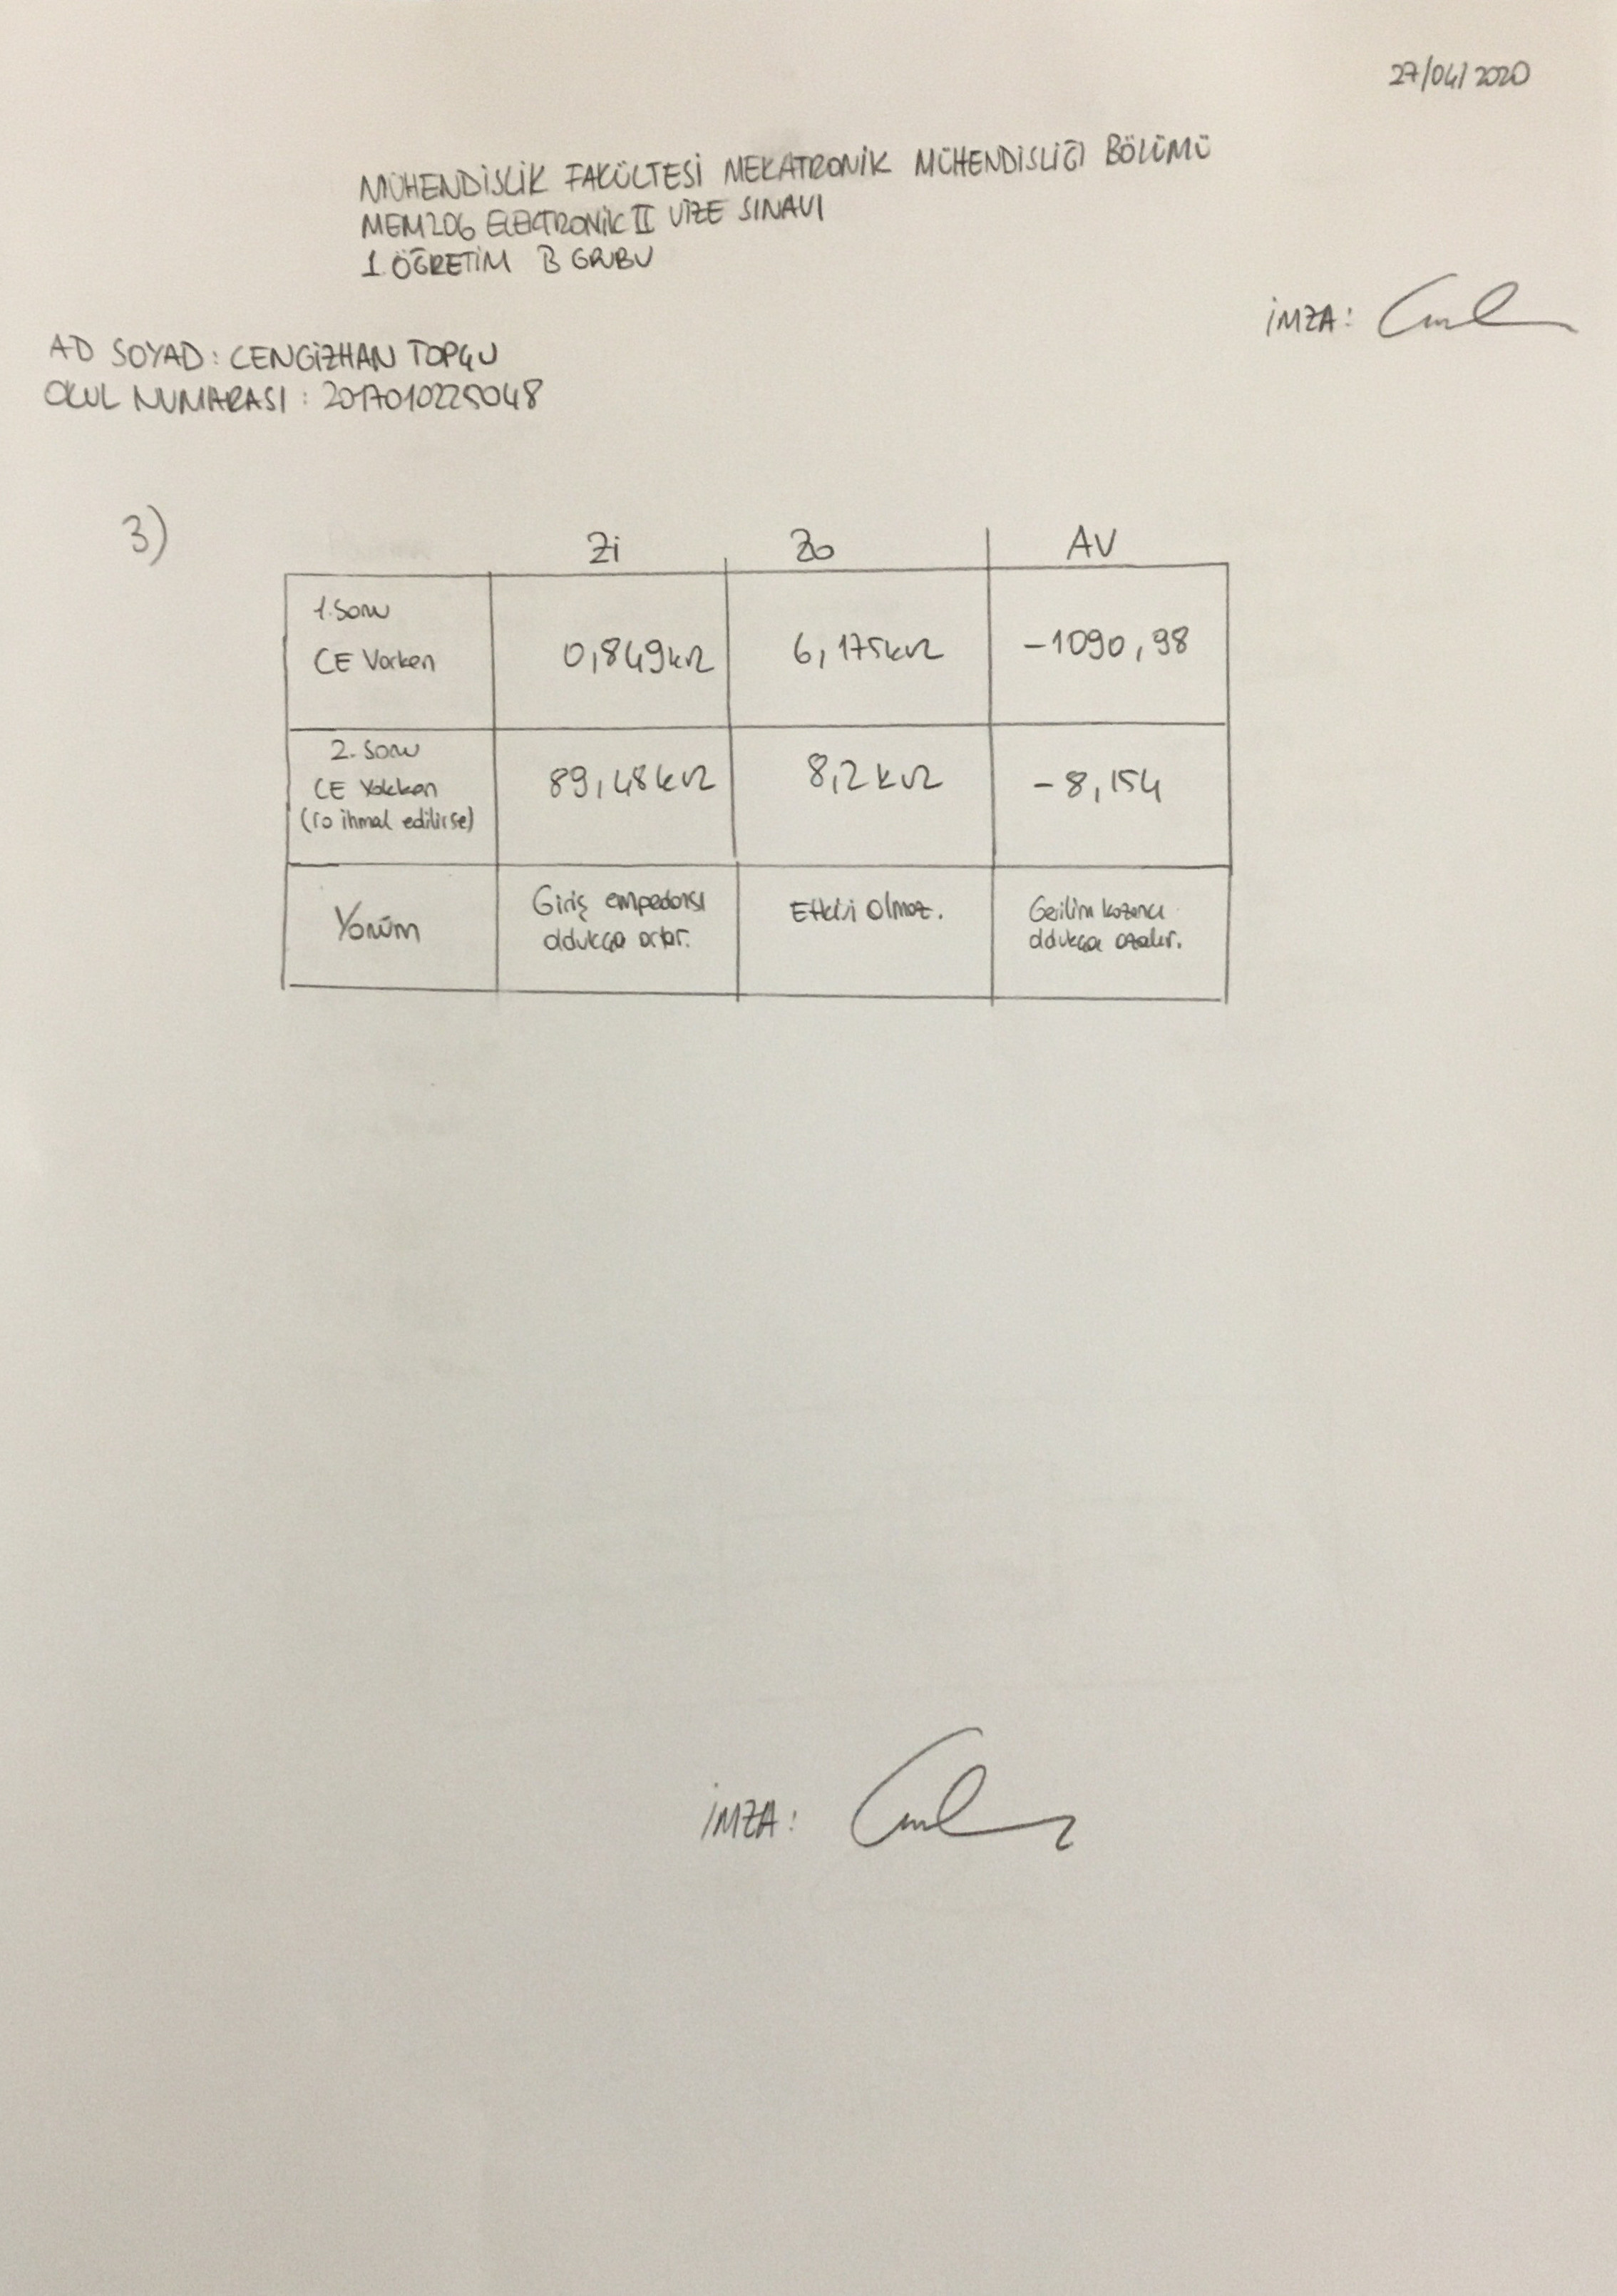 27/04/2020
MÜHENDİSLİK FAKÜLTESİ MEKATRONİK MÜHENDİSLİĞİ BÖLÜMÜ
MEM206 ELEKTRONİK II VİZE SINAVI
1.ÖĞRETİM B GRUBU
İMZA:
AD SOYAD: CENGİZHAN TOPÇU
OKUL NUMARASI: 2017010225048
3)
Zi Zo AV
1.Soru
CE Varken 0,849kΩ 6,175kΩ -1090,98
2. Soru
CE Yokken 89,48kΩ 8,2kΩ -8,154
(ro ihmal edilirse)
Yorum
Giriş empedansı
oldukça artar.
Etkisi Olmaz.
Gerilim kazancı
oldukça azalır.
İMZA: